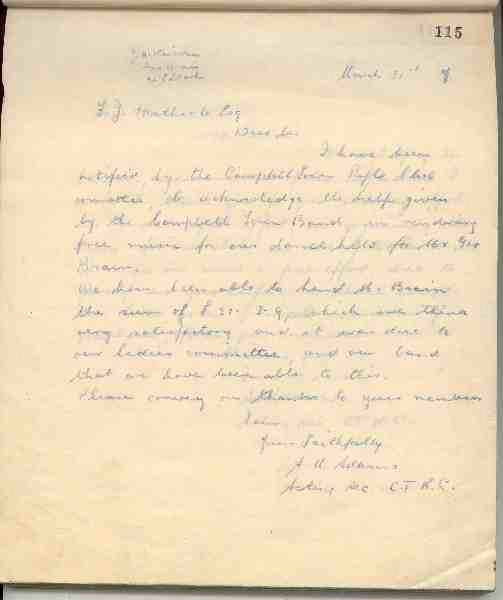 115
March 31st
F. J. Esq
Dear Sir
I have been
notified, by the Campbell Town Rifle Club
committee, to acknowledge the help given
by the Campbell Town Band, in rendering
free music for our dance held for Mr Geo
Brain.
We have been able to hand Mr Brain
the sum of £ which we think
very satisfactory, and it was due to
our ladies committee, and our band
that we have been able to this.
Please convey our thanks to your members
Yours Faithfully
A Adams
Acting Sec C.T.R.C.